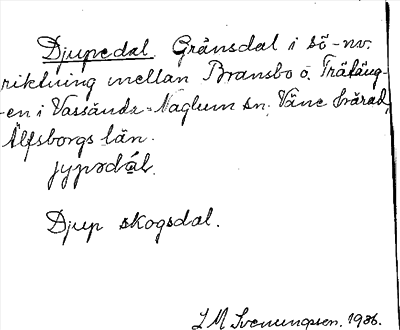 Djupedal. Gränsdal i sö-nv.
riktning mellan Bransbo o. Träläng-
-en i Vassända-Naglum sn, Väne härad,
Älfsborgs län.
jypədàl.
Djup skogsdal.
L M Svenungsson. 1936.